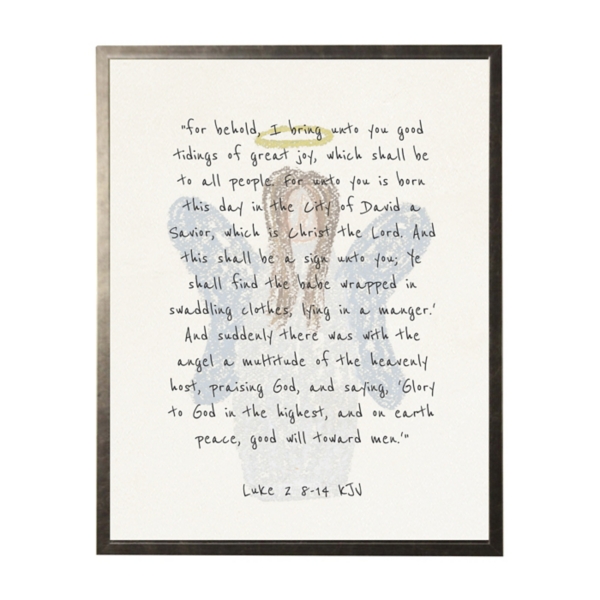 "For behold, I bring unto you good
tidings of great joy, which shall be
to all people. For unto you is born
this day in the City of David a
Savior, which is Christ the Lord. And
this shall be a sign unto you; Ye
shall find the babe wrapped in
swaddling clothes, lying in a manger.'
And suddenly there was with the
angel a multitude of the heavenly
host, praising God, and saying, 'Glory
to God in the highest, and on earth
peace, good will toward men.'"
Luke 2 8-14 KJV